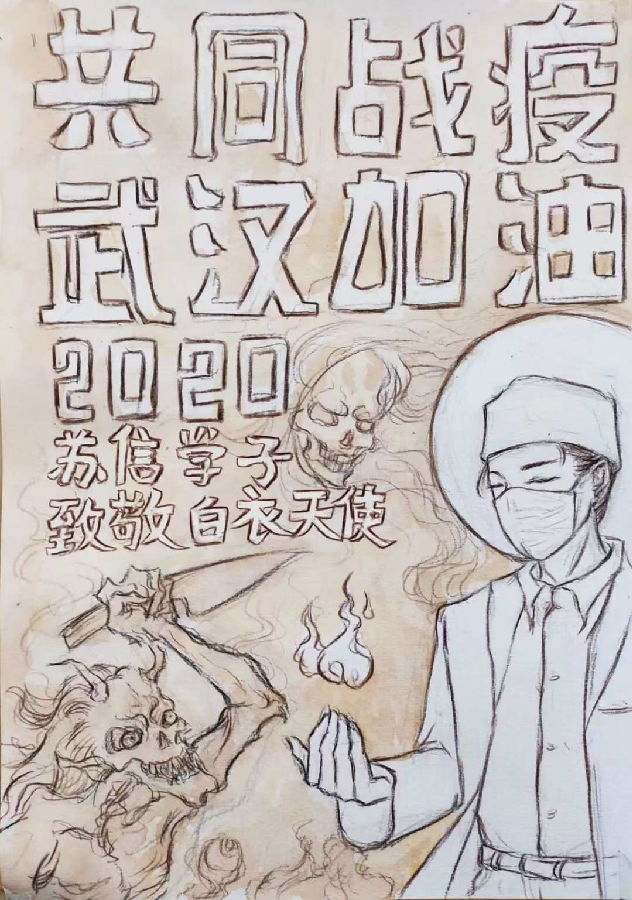 共同战疫
武汉加油
2020
苏信学子
致敬白衣天使